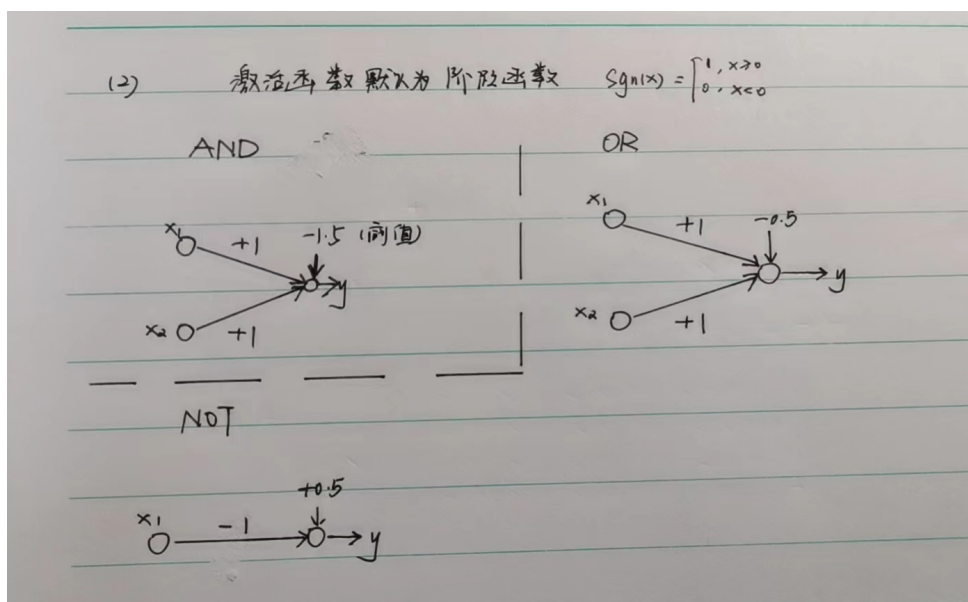 (2) 激活函数默认为阶段函数 Sgn(x) = { 1, x≥0
0, x<0
AND
x₁ +1 -1.5 (阈值)
y
x₂ +1
OR
x₁ +1 -0.5
y
x₂ +1
NOT
+0.5
x₁ -1 y